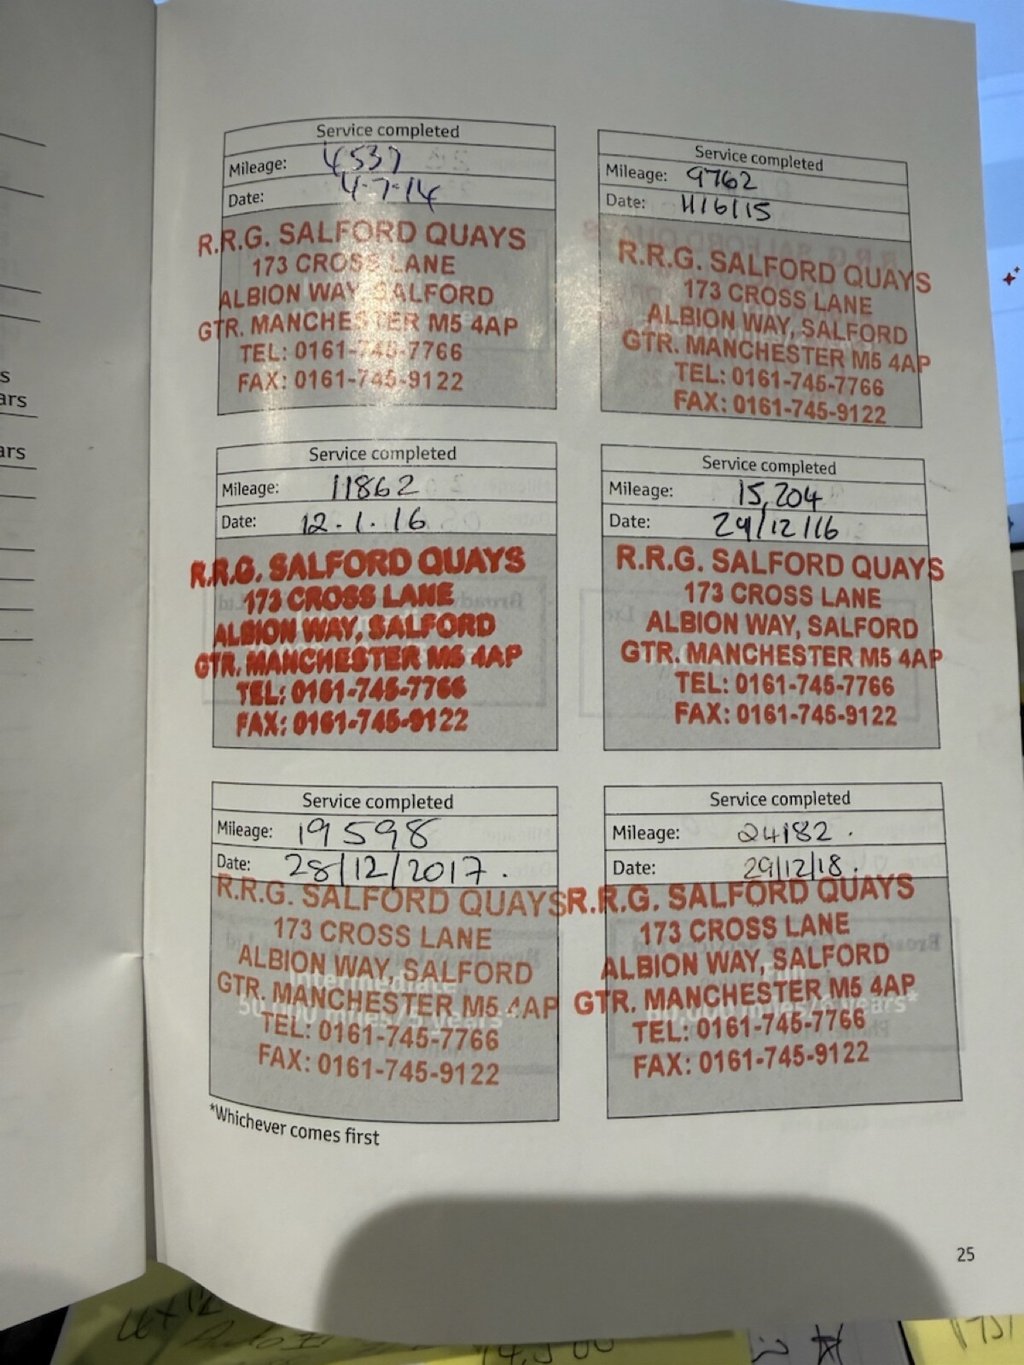 s
ars
ars
Service completed
Mileage: 4537
Date: 4-7-14
R.R.G. SALFORD QUAYS
173 CROSS LANE
ALBION WAY, SALFORD
GTR. MANCHESTER M5 4AP
TEL: 0161-745-7766
FAX: 0161-745-9122
Service completed
Mileage: 9762
Date: 11/6/15
R.R.G. SALFORD QUAYS
173 CROSS LANE
ALBION WAY, SALFORD
GTR. MANCHESTER M5 4AP
TEL: 0161-745-7766
FAX: 0161-745-9122
Service completed
Mileage: 11862
Date: 12.1.16
R.R.G. SALFORD QUAYS
173 CROSS LANE
ALBION WAY, SALFORD
GTR. MANCHESTER M5 4AP
TEL: 0161-745-7766
FAX: 0161-745-9122
Service completed
Mileage: 15,204
Date: 29/12/16
R.R.G. SALFORD QUAYS
173 CROSS LANE
ALBION WAY, SALFORD
GTR. MANCHESTER M5 4AP
TEL: 0161-745-7766
FAX: 0161-745-9122
Service completed
Mileage: 19598
Date: 28/12/2017.
R.R.G. SALFORD QUAYS
173 CROSS LANE
ALBION WAY, SALFORD
Intermediate
GTR. MANCHESTER M5 4AP
50,000 miles/5 years*
TEL: 0161-745-7766
FAX: 0161-745-9122
Service completed
Mileage: 24182.
Date: 29/12/18.
R.R.G. SALFORD QUAYS
173 CROSS LANE
ALBION WAY, SALFORD
Full
GTR. MANCHESTER M5 4AP
60,000 miles/6 years*
TEL: 0161-745-7766
FAX: 0161-745-9122
*Whichever comes first
25